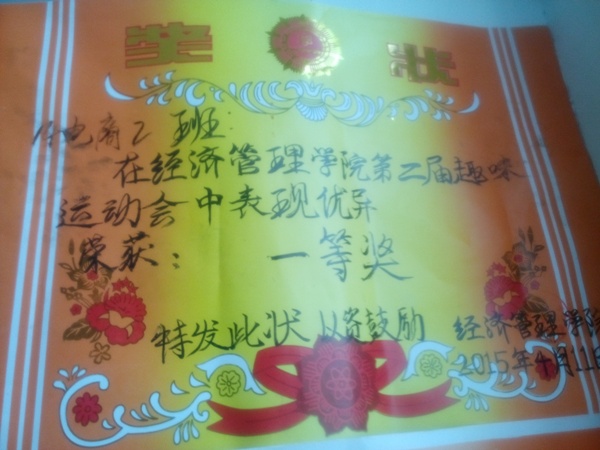 奖状
电商2班
在经济管理学院第二届趣味
运动会中表现优异
荣获： 一等奖
特发此状 以资鼓励 经济管理学院
2015年4月11日